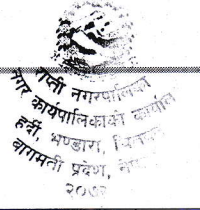 राप्ती नगरपालिका
नगर कार्यपालिकाको कार्यालय
हर्दी, भण्डारा,
बागमती प्रदेश, नेपाल
२०७३